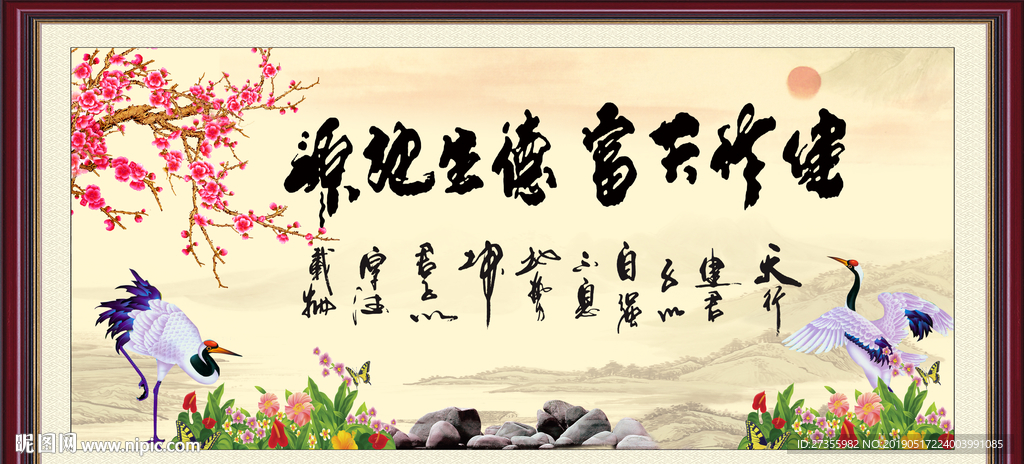 健行天富德生地源
天行
健君
子以
自强
不息
地勢
坤
君子以
厚德
載物
昵图网 www.nipic.com
ID:27355982 NO:20190517224003991085